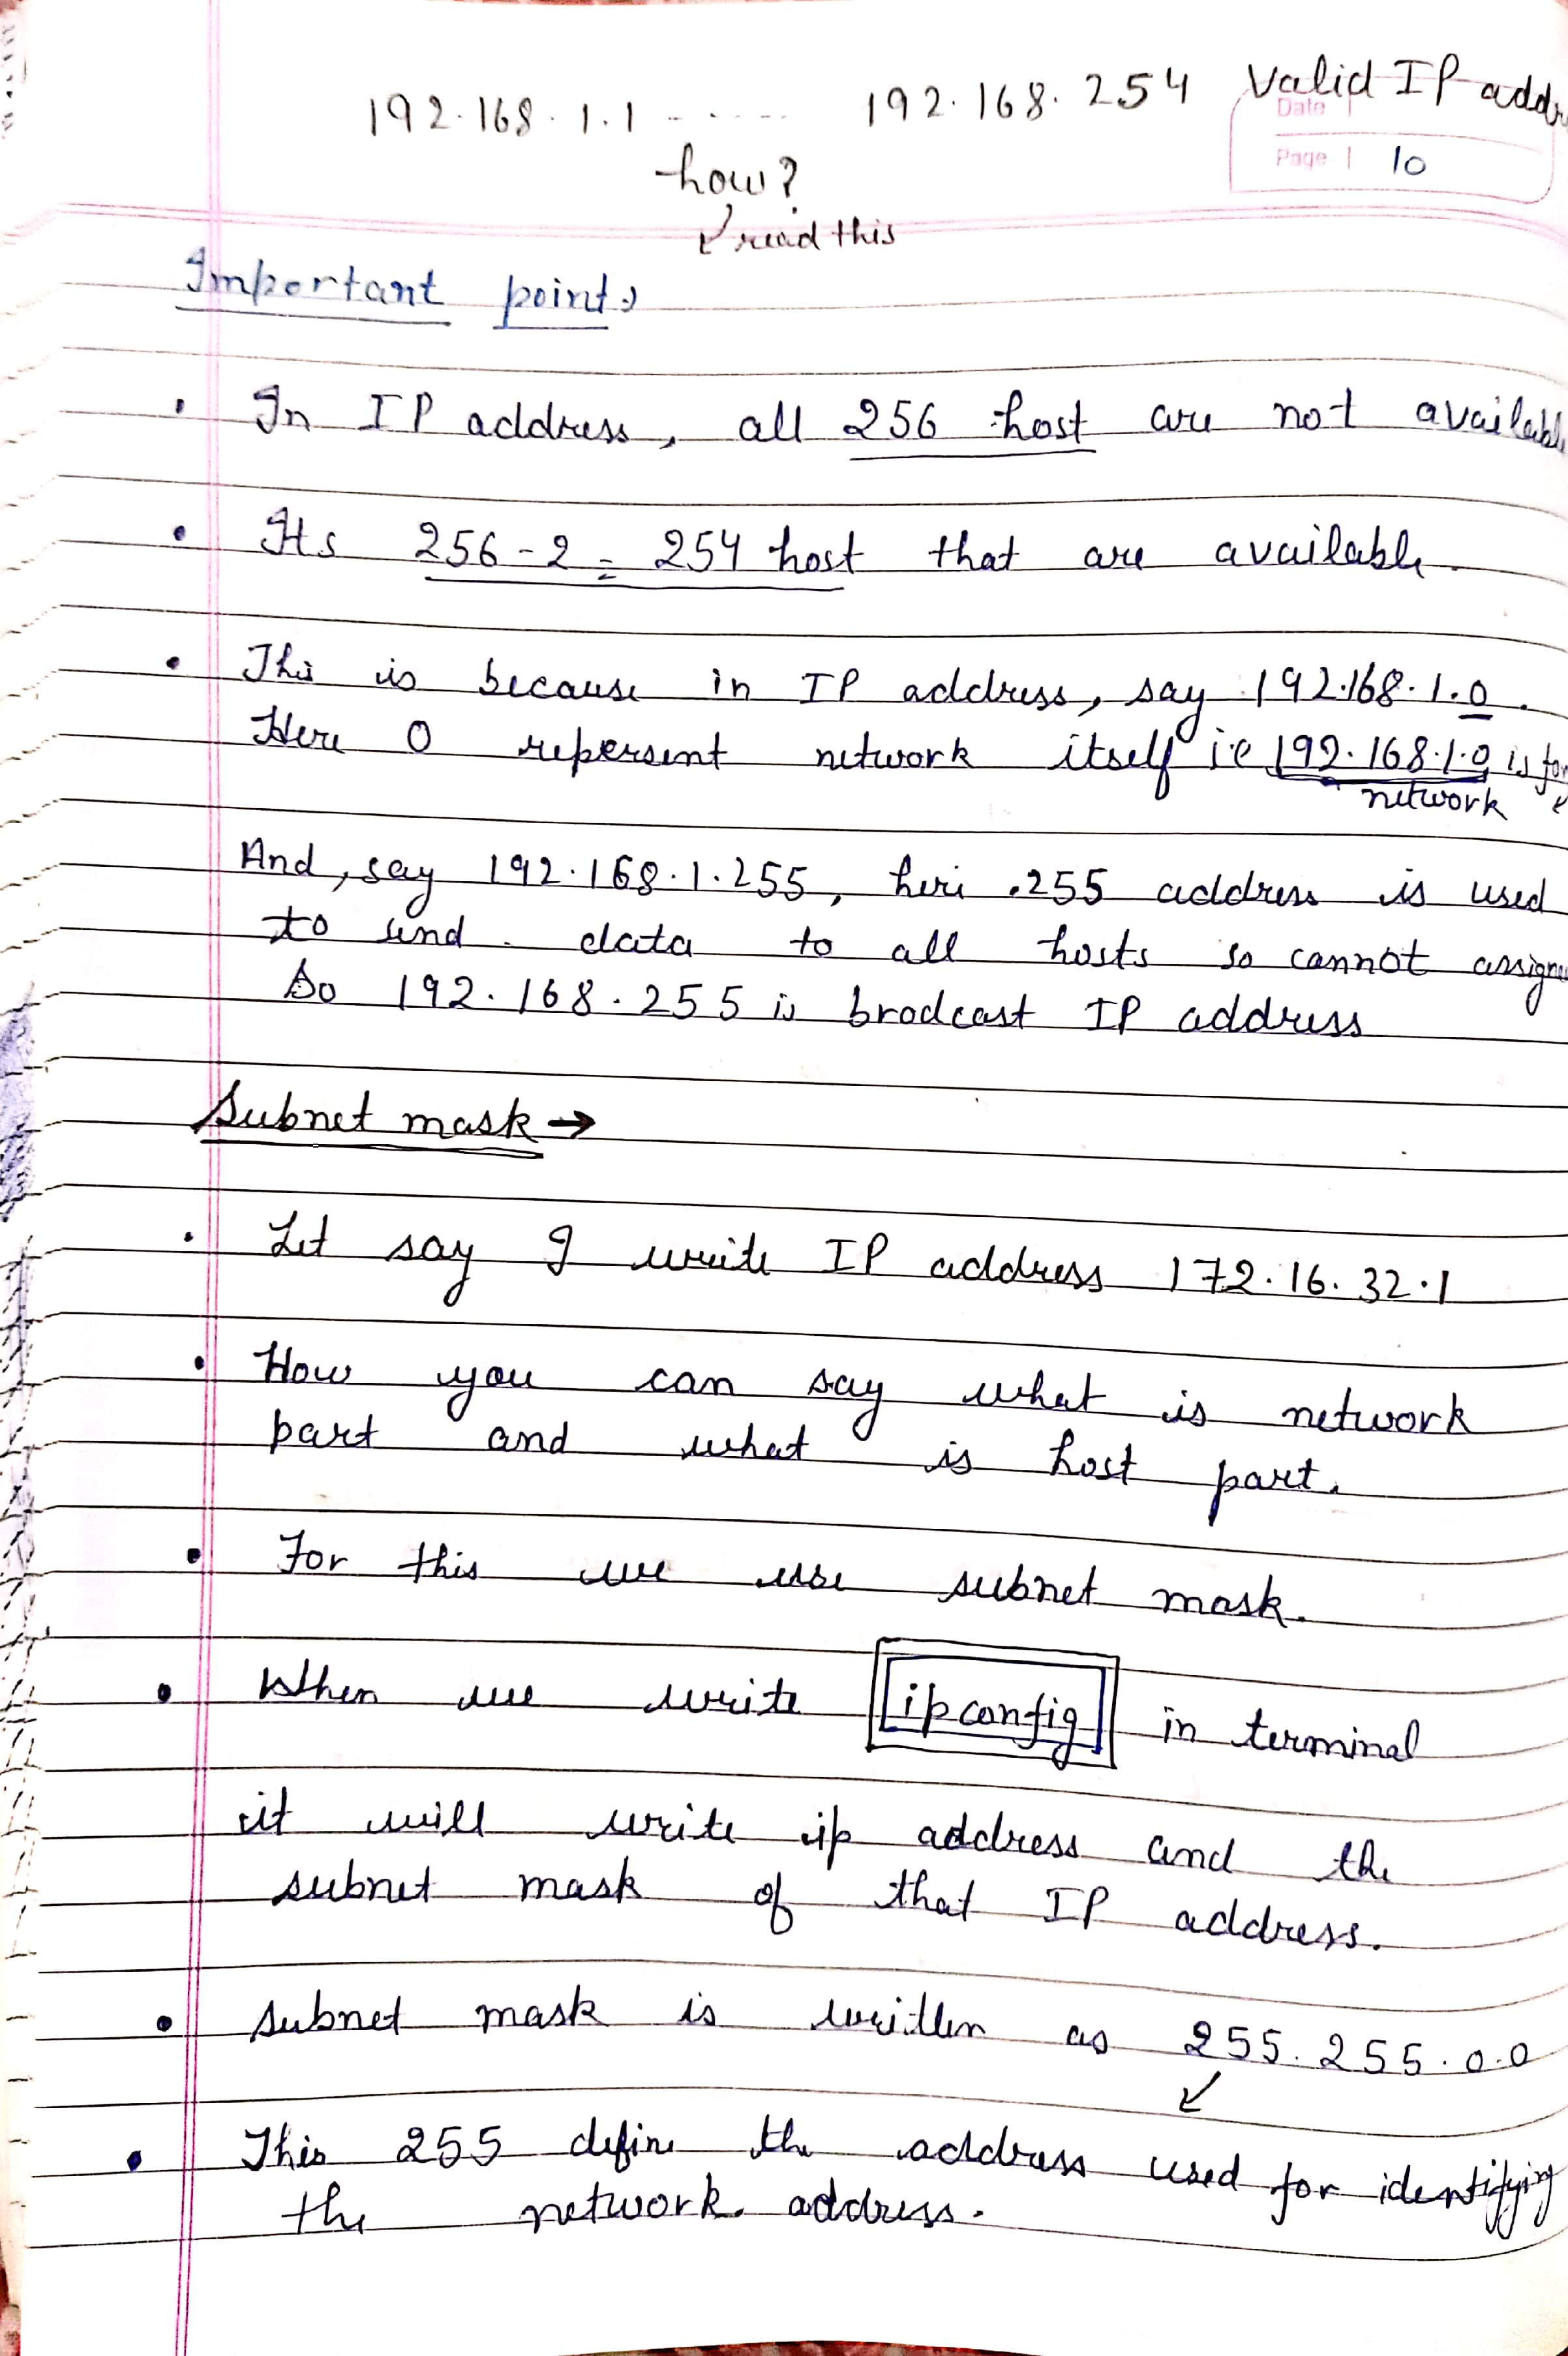 192.168.1.1 ...... 192.168.254 Valid IP addr
Date
Page 10
how?
read this
Important points
• In IP address, all 256 host are not availabl
• Its 256-2 = 254 host that are available.
• This is because in IP address, say 192.168.1.0.
Here 0 repersent network itself i.e 192.168.1.0 is for
network
And, say 192.168.1.255, here .255 address is used
to send data to all hosts so cannot assign
So 192.168.255 is brodcast IP address
Subnet mask →
• Let say I write IP address 172.16.32.1
• How you can say what is network
part and what is host part.
• For this we use subnet mask.
• When we write ipconfig in terminal
it will write ip address and the
subnet mask of that IP address.
• Subnet mask is written as 255.255.0.0
• This 255 define the address used for identifying
the network address.